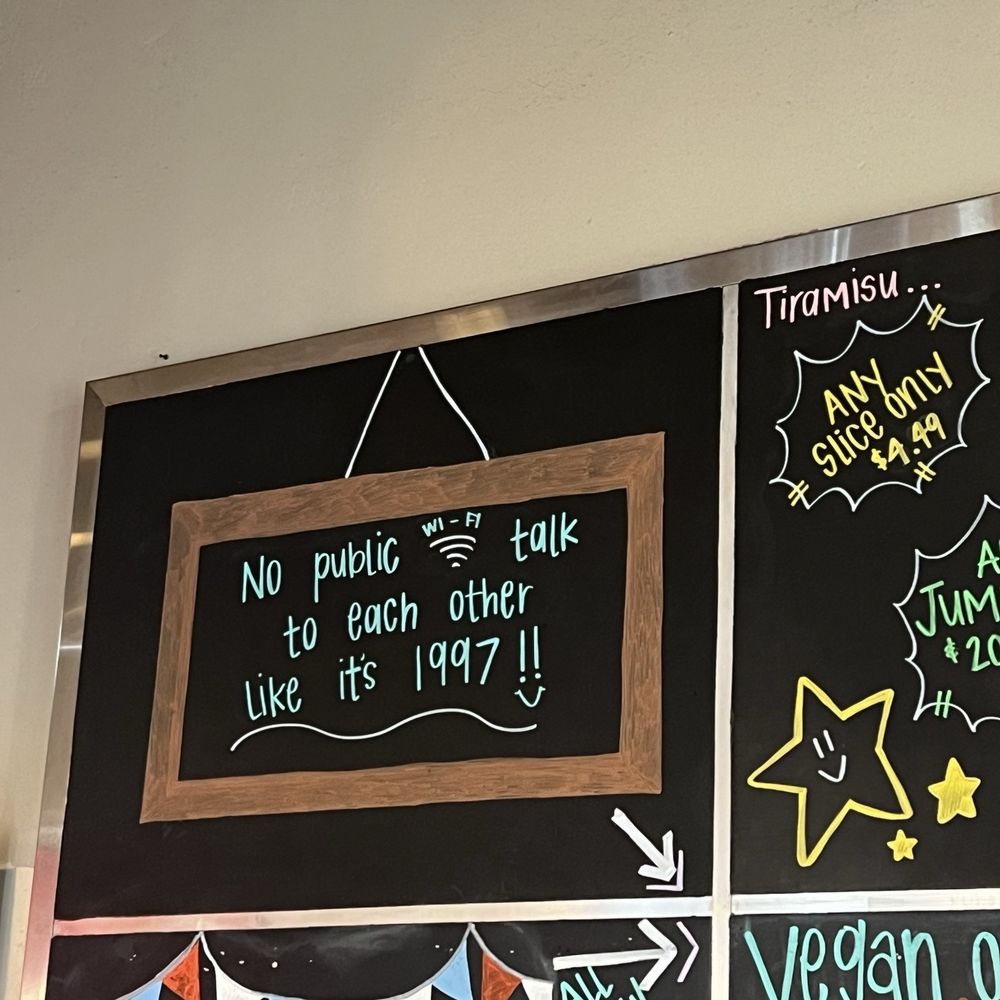 No public WI-FI talk
to each other
like it's 1997!!
Tiramisu...
ANY
Slice only
$4.49
Vegan
All